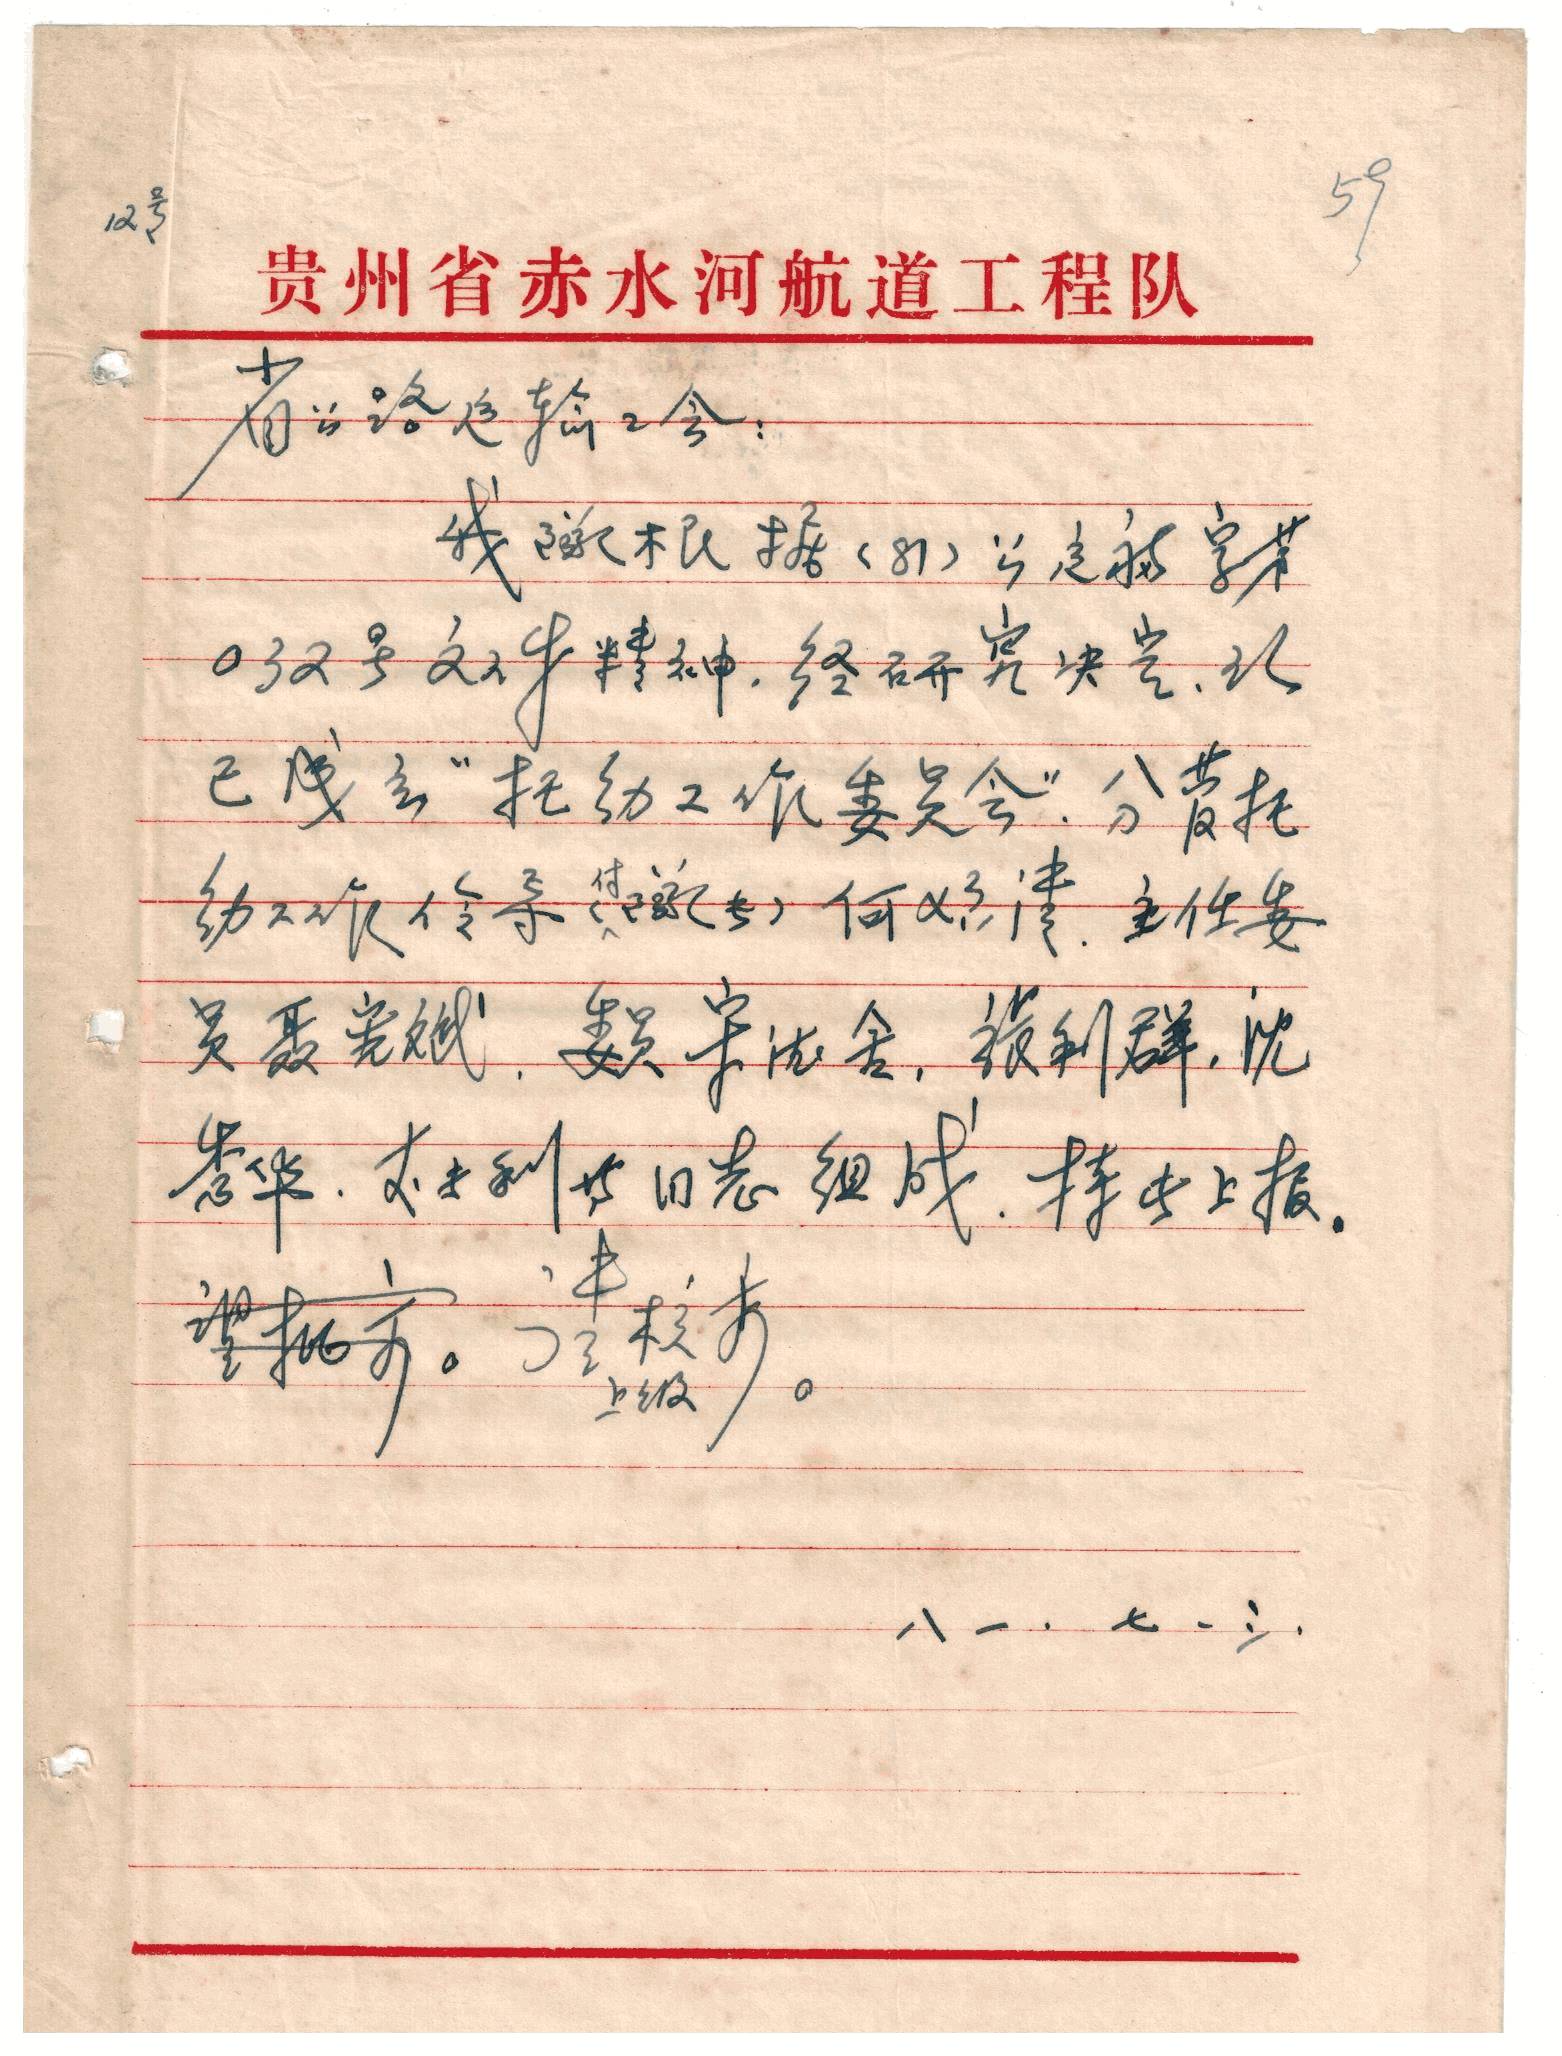 12号
59
贵州省赤水河航道工程队
省公路运输工会：
我队根据（81）公运福字第
032号文件精神．经研究决定、现
已成立“托幼工作委员会”．分管托
幼工作领导（付队长）何 清．主任委
员聂宪斌，委员宋 ，张利群，沈
秀华． 等同志组成．特此上报。
望批示。 请上级核示。
八一．七．三．